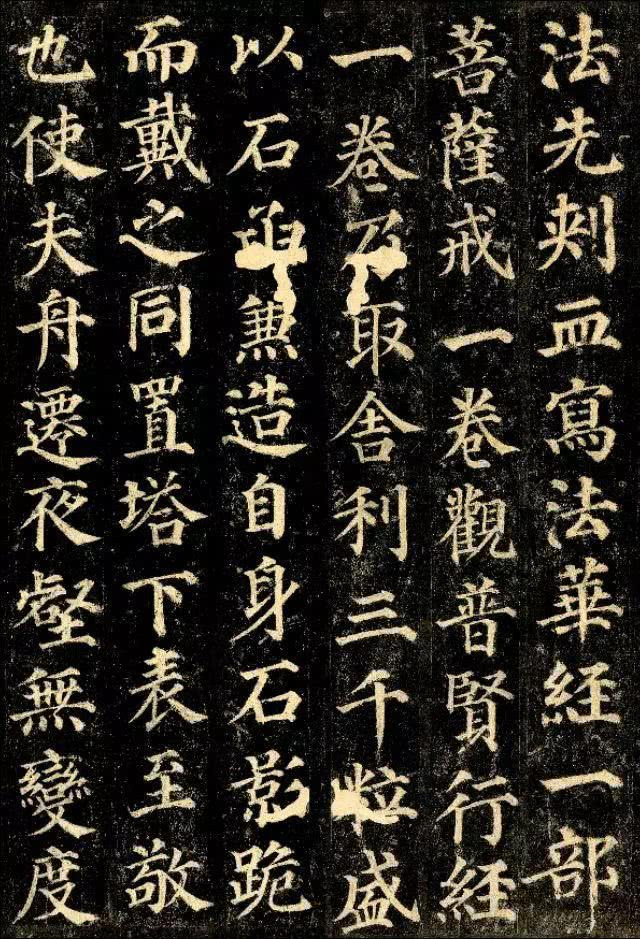 法先刾血寫法華経一部
菩薩戒一卷觀普賢行経
一卷乃取舎利三千粒盛
以石函兼造自身石影跪
而戴之同置塔下表至敬
也使夫舟遷夜壑無變度